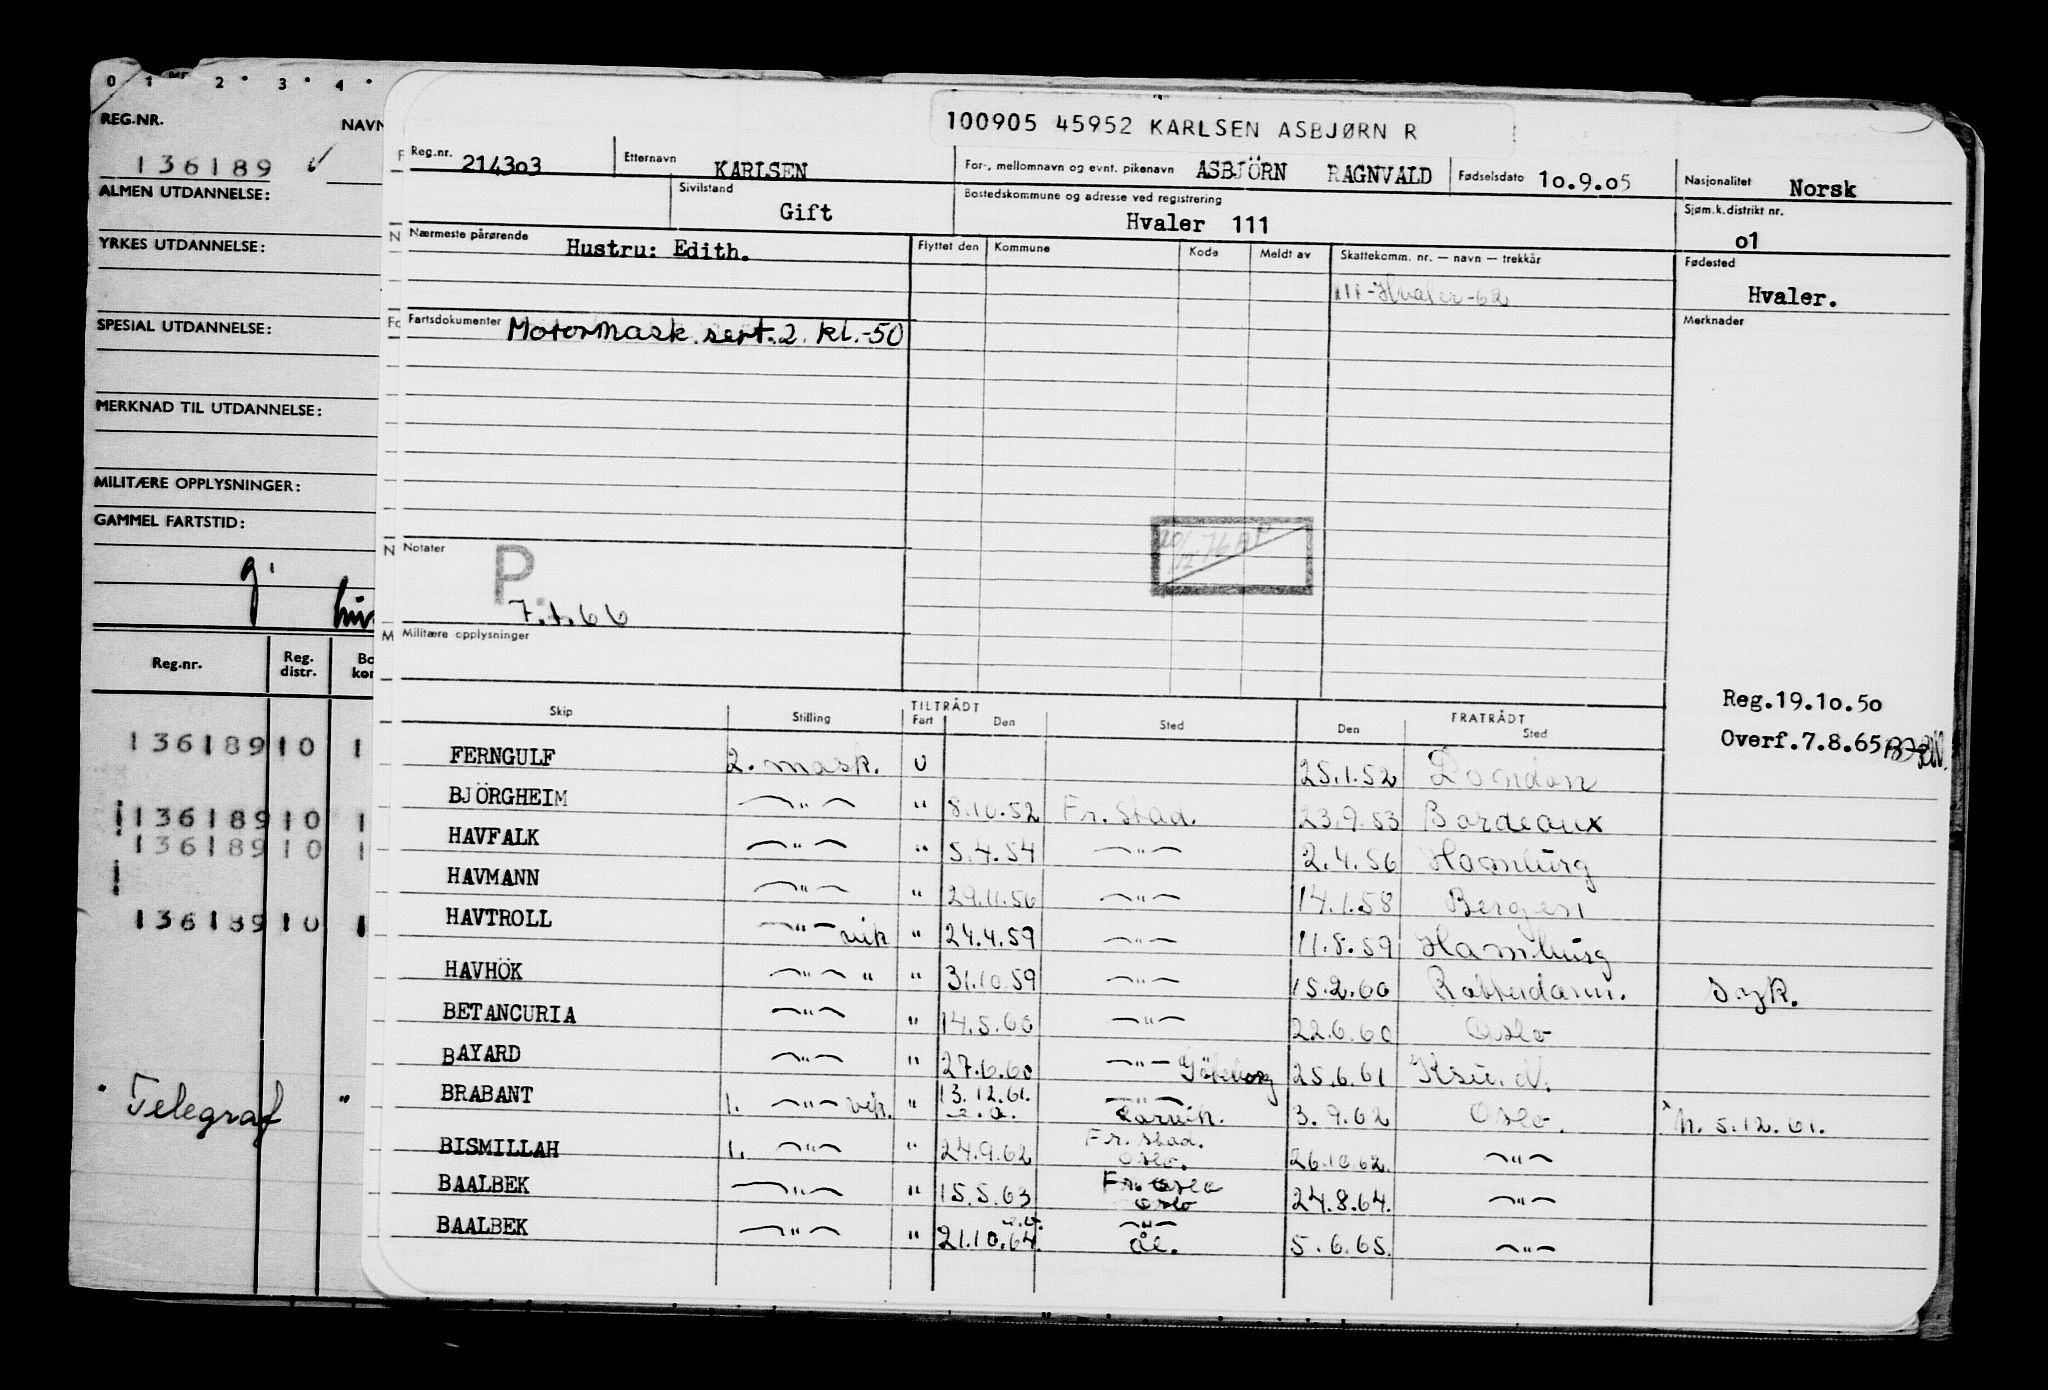 0 1 2 3 4
REG.NR.
NAVN
136189
ALMEN UTDANNELSE:
YRKES UTDANNELSE:
SPESIAL UTDANNELSE:
MERKNAD TIL UTDANNELSE:
MILITÆRE OPPLYSNINGER:
GAMMEL FARTSTID:
g.
Reg.nr. Reg. distr. Bo kon
136189 10 1
136189 10 1
136189 10 1
136189 10 1
Telegraf "
100905 45952 KARLSEN ASBJØRN R
Reg.nr. 214303 Etternavn KARLSEN For-, mellomnavn og evnt. pikenavn ASBJÖRN RAGNVALD Fødselsdato 10.9.05 Nasjonalitet Norsk
Sivilstand Gift Bostedskommune og adresse ved registrering Hvaler 111 Sjøm.k.distrikt nr. 01
Nærmeste pårørende Hustru: Edith. Flyttet den Kommune Kode Meldt av Skattekomm. nr. — navn — trekkår Fødested Hvaler.
111-Hvaler-62
Fartsdokumenter Motormask.sert.2. kl.-50 Merknader
Notater P.
7.1.66
Militære opplysninger
Reg.19.10.50
Overf.7.8.65
Skip Stilling TILTRÅDT Fart Den Sted FRATRÅDT Den Sted
FERNGULF 2. mask. U 25.1.52 London
BJÖRGHEIM —"— " 8.10.52 Fr.stad. 23.9.53 Bordeaux
HAVFALK —"— " 5.4.54 —"— 2.4.56 Hamburg
HAVMANN —"— " 29.11.56 —"— 14.1.58 Bergen
HAVTROLL —"— vik " 24.4.59 —"— 11.8.59 Hamburg
HAVHÖK —"— " " 31.10.59 —"— 15.2.60 Rotterdam. syk.
BETANCURIA —"— " 14.5.60 —"— 22.6.60 Oslo
BAYARD —"— " 27.6.60 —"— Göteborg 25.6.61 Ksu.N.
BRABANT 1. —"— vik. " 13.12.61. —"— Larvik. 3.9.62 Oslo. x N. 5.12.61.
BISMILLAH 1. —"— " 24.9.62 Fr.stad. Oslo. 26.10.62. —"—
BAALBEK —"— " 15.5.63 Fr. Oslo Oslo 24.8.64. —"—
BAALBEK —"— " 21.10.64. —"— ål. 5.6.65. —"—